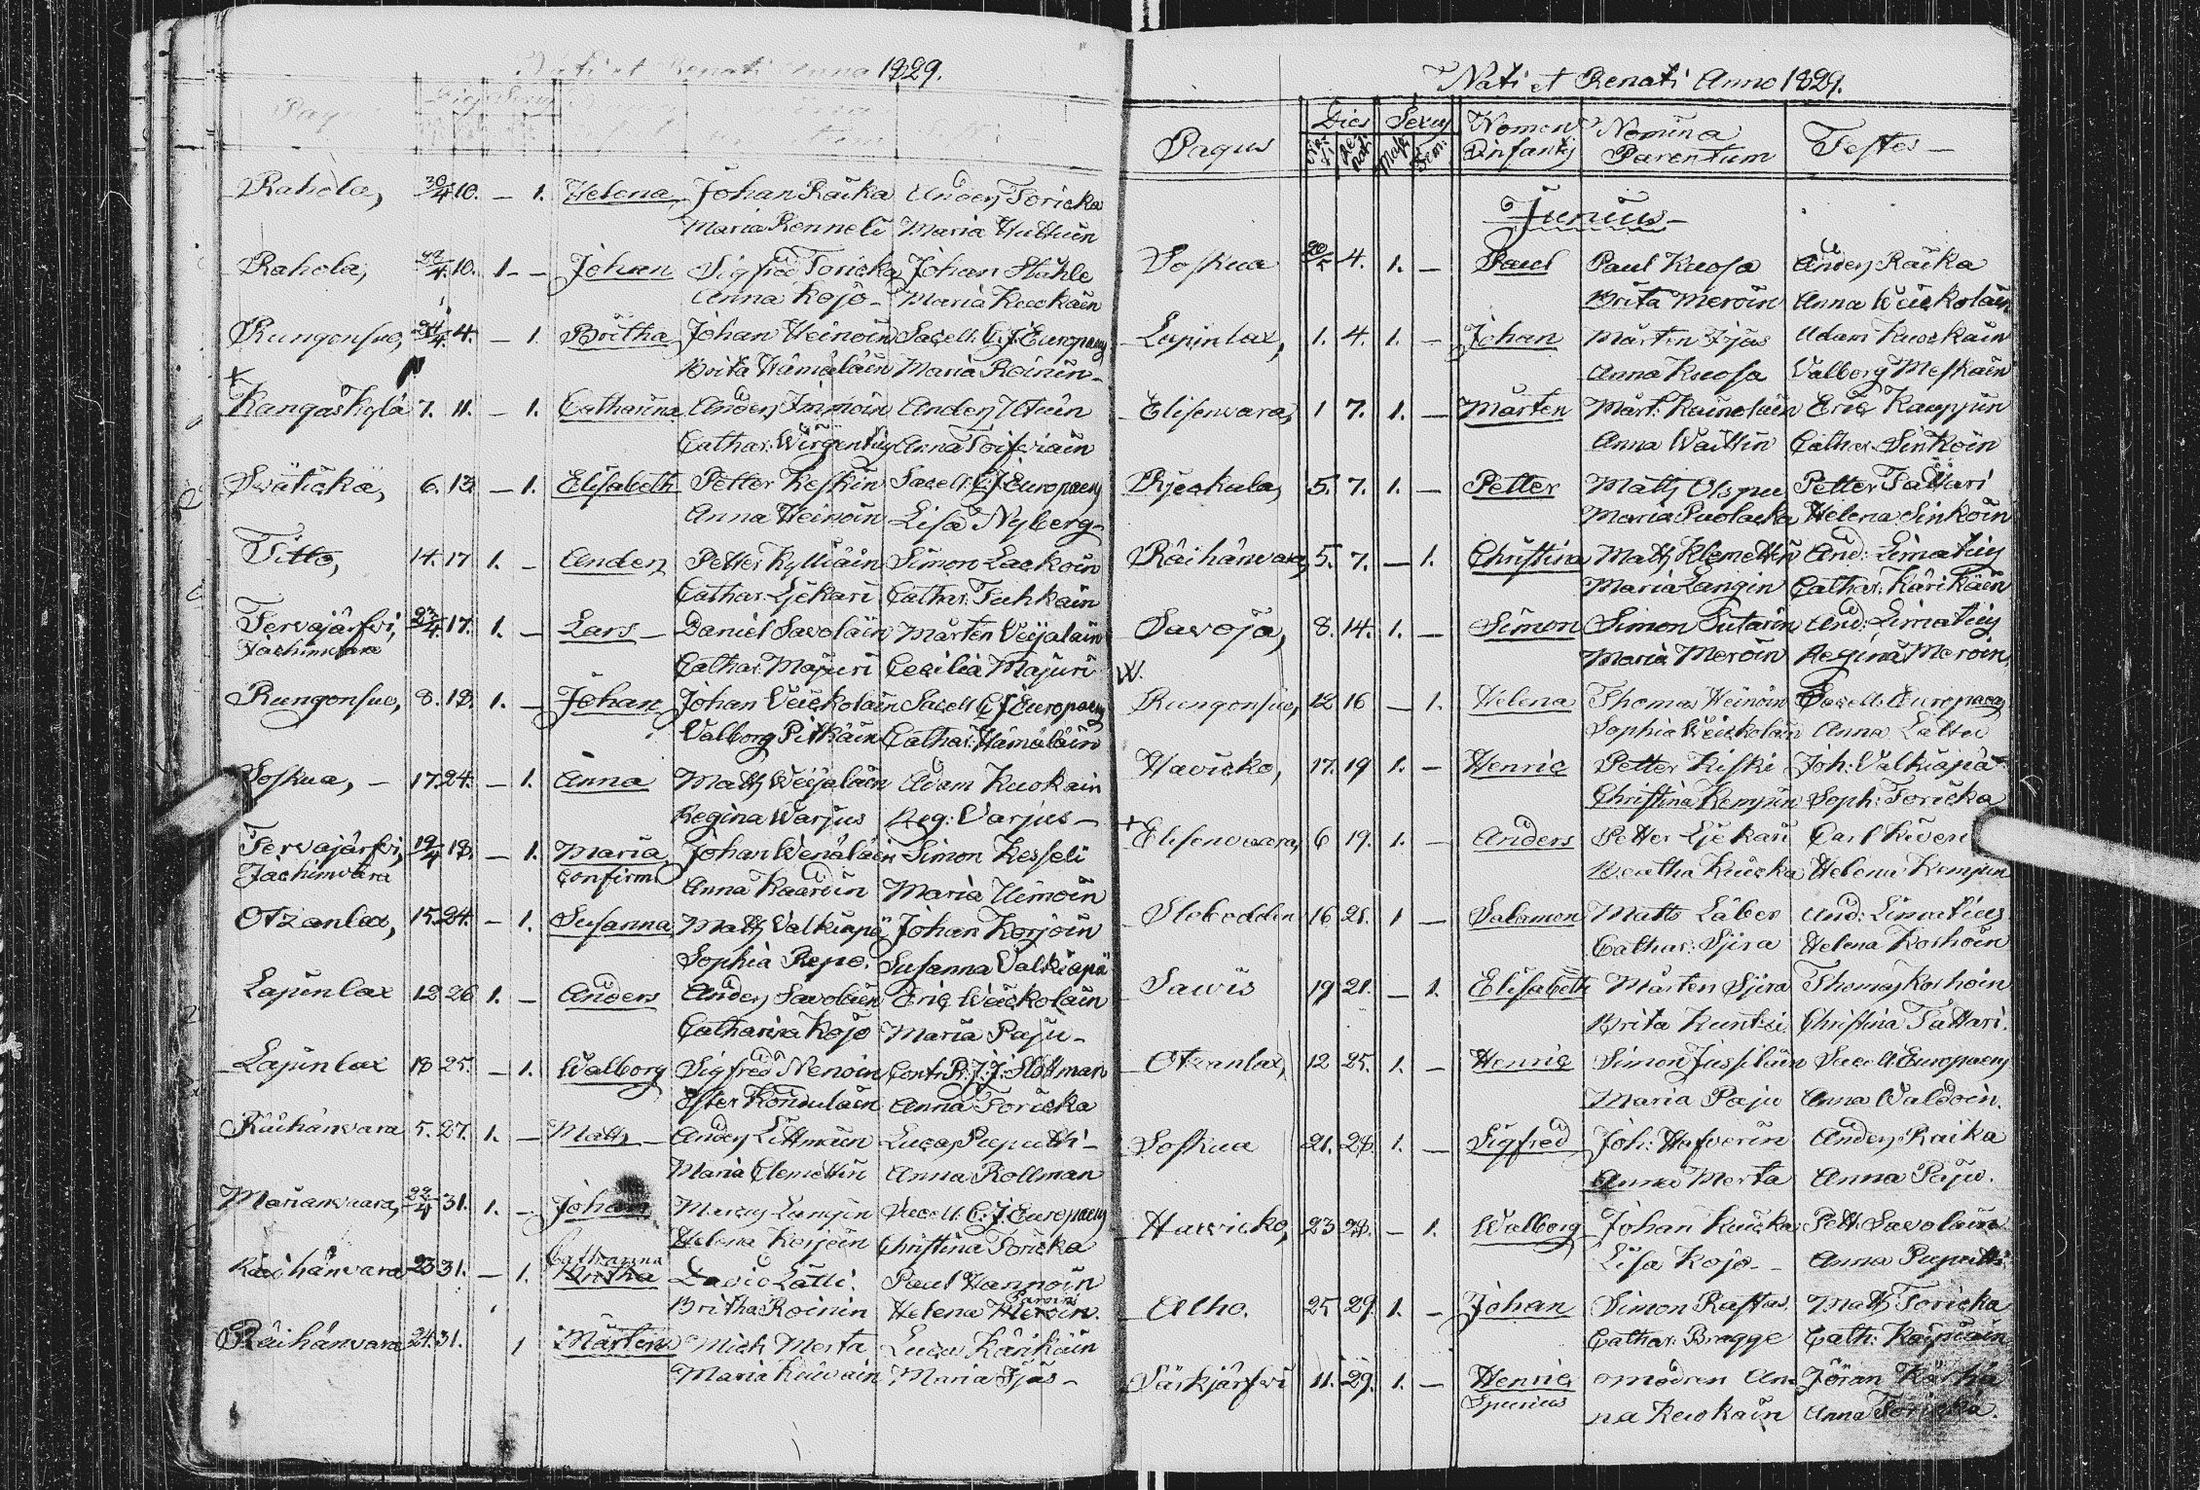 Nati et Renati Anno 1829.
Rahola, 30/4 10. — 1. Helena Johan Räika Anders Toricka
Maria Renneli Maria Huttuin
Rahola, 10. 1. — Johan Sigfred Toricka Johan Ståhle
Anna Kojo — Maria Kuokain
Rungonsuo, 4. — 1. Britha Johan Heinoin Sacell: C.J. Europaeus
Brita Hämäläin Maria Roinin —
+
Kangaskylä 7. 11. — 1. Catharina Anders Immoin Anders
Cathar: Wirgentius Anna Toifviain
6. 13. — 1. Elisabeth Petter Keskin Sacell: C.J. Europaeus
Anna Heinoin Lisa Nyberg —
Titto, 14. 17 1. — Anders Petter Kylliäin Simon Lackoin
Cathar: Ljekari Cathar: Tuhkain
Tervajärfvi, 23/4 17. 1. — Lars — Daniel Savolain Mårten Veijalain
Jachimvara Cathar: Majuri Cecilia Majuri
Rungonsuo, 8. 18. 1. — Johan Johan Veickolain Sacell: C.J. Europaeus
Valborg Pitkäin Cathar: Hämäläin
Soskua, — 17. 24. — 1. Anna Matts Veijalain Adam Kuokain
Regina Warjus Reg: Varjus —
Tervajärfvi, 19/4 18. — 1. Maria Johan Wenäläin Simon Kesseli
Jachimvara Confirm Anna Kaardin Maria Himoin
Otzanlax, 15. 24. — 1. Susanna Matts Valkiapä Johan Korjoin
Sophia Repo. Susanna Valkiapä
Lapinlax 12 26 1. — Anders Anders Savolain Eric Weickolain
Catharina Kojo Maria Paju —
Lapinlax 18 25. — 1. Walborg Sigfred Nenoin Contr: P: J: J: Slöttman
Ester Kondulain Anna Toricka
Räihänvara 5. 27. 1. — Matts — Anders Littmain Lucas Puputti —
Maria Clemettin Anna Rollman
Marianvaara, 22/4 31. 1. — Johan Langin Sacell: C.J. Europaeus
Helena Korjoin Christina Toricka
Catharina
Räihänvara 23 31. — 1. Britha David Lätti. Paul Hannoin
Paroin
Britha Roinin Helena Meroin.
Räihänvara 24. 31. 1 Mårten Mich Merta Lucas Kärikäin
Maria Maria Ijäs —
Nati et Renati Anno 1829.
Pagus Dies Sexus Nomen Nomina Testes —
Nati Renati Masc: Fem: Infantis Parentum
Junius —
Soskua 4. 1. — Paul Paul Kuosa Anders Räika
Brita Meroin Anna Weickolain
Lapinlax, 1. 4. 1. — Johan Mårten Ijäs Adam Kuockain
Anna Kuosa Valborg Meskäin
Elisenvara, 1 7. 1. — Mårten Mårt: Kainolain Eric Kauppin
Anna Waittin Cathar: Sinkoin
Rjeckula, 5. 7. 1. — Petter Matts Petter Tattari
Maria Puolacka Helena Sinkoin
Räihänvara, 5. 7. — 1. Christina Matts Klemettin And: Limatius
Maria Langin Cathar: Kärikäin
Savoja, 8. 14. 1. — Simon Simon Sutarin And: Limatius
Maria Meroin Regina Meroin
W.
Rungonsuo, 12 16 — 1. Helena Thomas Heinoin Sacell: Europaeus
Sophia Weickolain Anna
Havicko, 17. 19 1. — Henric Petter Kiski Joh: Valkiapä
Christina Kempin Soph: Toricka
+
Elisenvara, 6 19. 1. — Anders Petter Ljekari Carl
Beatha Helena Kempin
Slobodden 16 21. 1 — Salamon Matts Läber And: Limatius
Cathar: Sjira Helena Korhoin
Sawis 19 21. — 1. Elisabeth Mårten Sjira Thomas Korhoin
Brita Kuntzi Christina Tattari.
Otzanlax, 12 25. 1. — Henric Simon Jussilain Sacell: Europaeus
Maria Paju Anna Waldoin.
Soskua 21. 28. 1. — Sigfred Joh: Hafverin Anders Raika
Anna Merta Anna Paju.
Havicko, 23 28. — 1. Walborg Johan Pett: Savolain
Lisa Kojo — Anna Puputti
Alho. 25 29. 1. — Johan Simon Rastas Matts Toricka
Cathar: Bragge Cath:
Särkjärfvi 11. 29. 1. — Henric modren An- Jöran Kärhä
Spurius na Kuokain Anna Toricka.